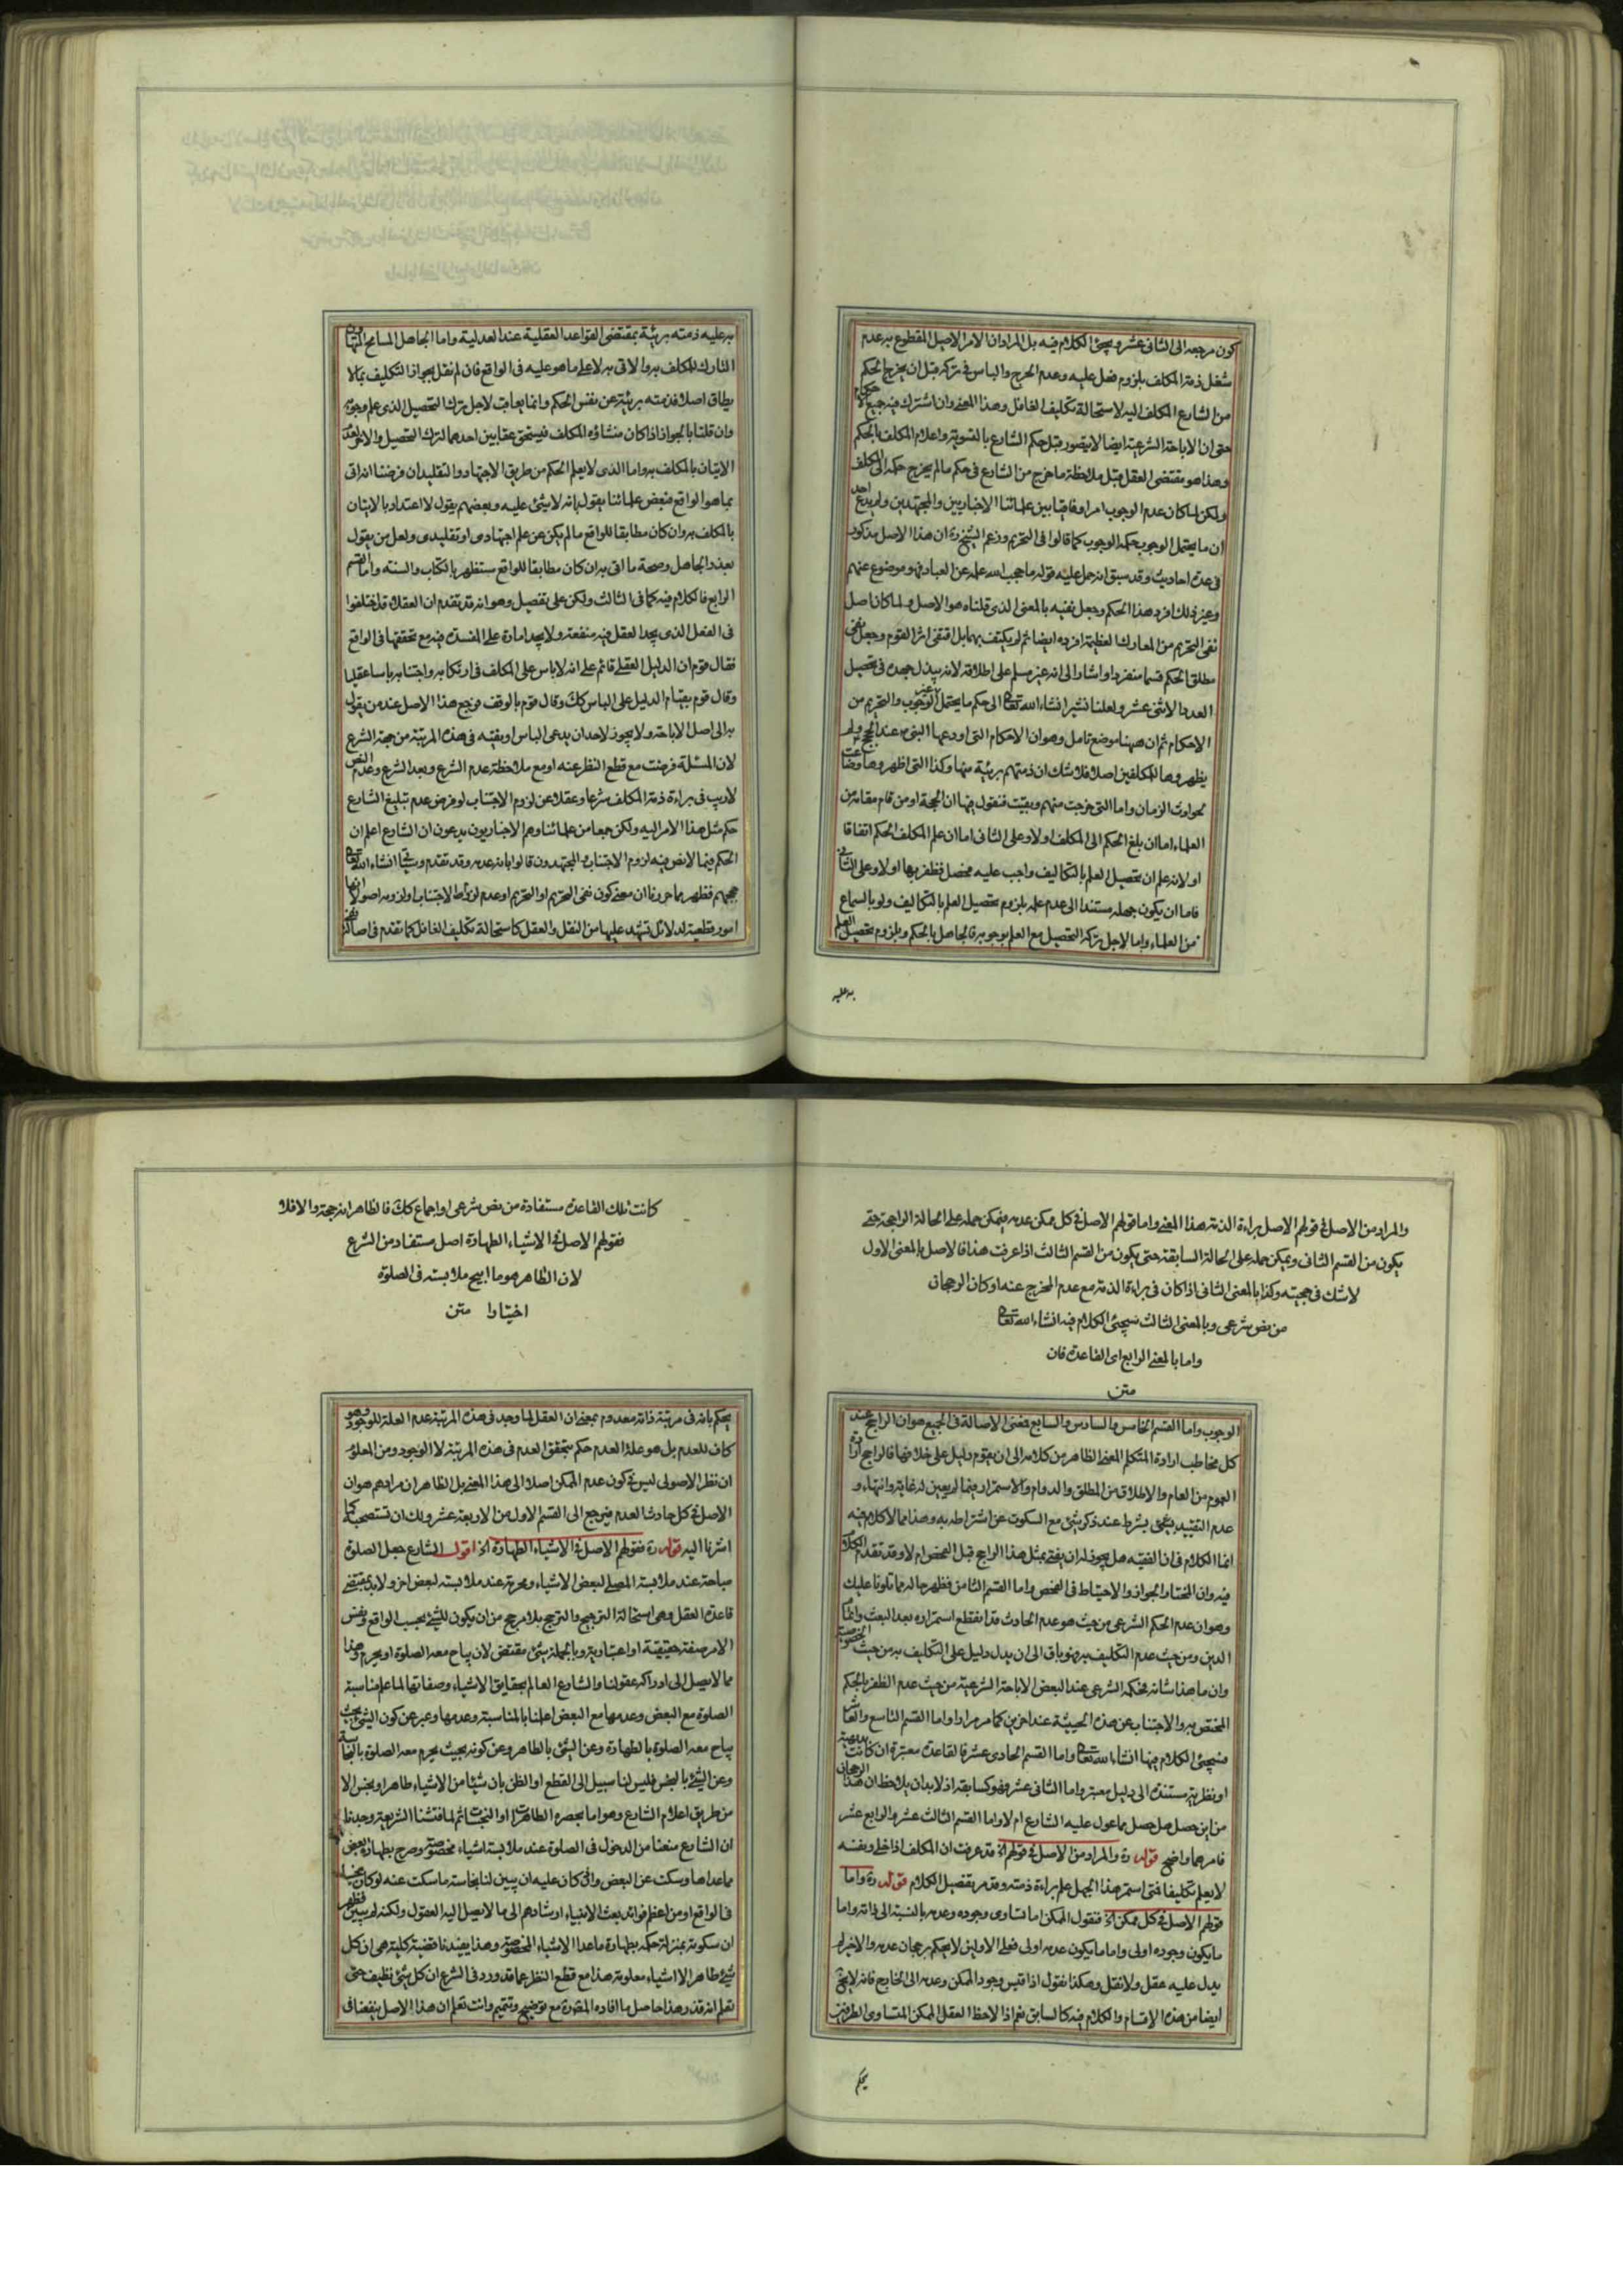 كون مرجعه الى الثانى عشر ويجئ الكلام فيه بل المراد ان الامر الاصيل المقطوع به عدم
شغل ذمة المكلف بلزوم فعل عليه وعدم الحرج والباس فى تركه قبل ان يخرج الحكم
من الشارع المكلف اليه لاستحالة تكليف الغافل وهذا المعنى وان اشترك فيه جميع الاحكام
حتى ان الاباحة الشرعية ايضا لا يتصور قبل حكم الشارع بالتسوية واعلام المكلف بالحكم
وهذا هو مقتضى العقل قبل ملاحظة ما خرج من الشارع فى حكم ما لم يخرج حكمه الى المكلف
ولكن لما كان عدم الوجوب امرا وفاقيا بين علمائنا الاخباريين والمجتهدين ولم يدع احد
ان ما يحتمل الوجوب حكمه الوجوب كما قالوا فى التحريم وزعم الشيخ ره ان هذا الاصل مذكور
فى عدة احاديث وقد سبق انه حمل عليه قوله ما حجب الله علمه عن العباد فهو موضوع عنهم
وغير ذلك افرد هذا الحكم وجعل نفيه بالمعنى الذى قلناه هو الاصل ولما كان اصل
نفى التحريم من المعارك العظيمة افرده ايضا ثم لم يكتف بهما بل اقتفى اثر القوم وجعل نفى
مطلق الحكم قسما منفردا واشار الى انه غير مسلم على اطلاقه لانه يبذل جهده فى تحصيل
العدد الاثنى عشر ولعلنا نشير انشاء الله تعالى الى حكم ما يحتمل الوجوب والتحريم من
الاحكام ثم ان ههنا موضع تامل وهو ان الاحكام التى اودعها النبى ص عند الحجج ولم
يظهروها للمكلفين اصلا فلا شك ان ذمتهم بريئة منها وكذا التى اظهروها وضاعت
لحوادث الزمان واما التى خرجت منهم وبقيت فنقول فيها ان الحجة او من قام مقامه من
العلماء اما ان بلغ الحكم الى المكلف اولا وعلى الثانى اما ان علم المكلف الحكم اتفاقا
اولا فان علم ان تحصيل العلم بالتكاليف واجب عليه فحصل فظفر بها اولا وعلى الثانى
فاما ان يكون جهله مستندا الى عدم علمه بلزوم تحصيل العلم بالتكاليف ولو بالسماع
من العلماء واما لاجل تركه التحصيل مع العلم بوجوبه فالجاهل بالحكم وبلزوم تحصيل العلم
به عليه
به عليه ذمته بريئة بمقتضى القواعد العقلية عند العدلية واما الجاهل المسامح المتهاون
التارك للمكلف به والاتى به لا على ما هو عليه فى الواقع فان لم نقل بجواز التكليف بما لا
يطاق اصلا فذمته بريئة عن نفس الحكم وانما يعاقب لاجل ترك التحصيل الذى علم وجوبه
وان قلنا بالجواز اذا كان منشاؤه المكلف فيستحق عقابين احدهما لترك التحصيل والاخر لعدم
الاتيان بالمكلف به واما الذى لا يعلم الحكم من طريق الاجتهاد والتقليد ان فرضنا انه اتى
بما هو الواقع فبعض علمائنا يقول بانه لا شئ عليه وبعضهم يقول لا اعتداد بالاتيان
بالمكلف به وان كان مطابقا للواقع ما لم يكن عن علم اجتهادى او تقليدى ولعل من يقول
بعذر الجاهل وصحة ما اتى به ان كان مطابقا للواقع مستظهر بالكتاب والسنة واما القسم
الرابع فالكلام فيه كما فى الثالث ولكن على تفصيل وهو انه قد تقدم ان العقلاء قد اختلفوا
فى الفعل الذى يجد العقل فيه منفعة ولا يجد امارة على المفسدة فيه مع تحققها فى الواقع
فقال قوم ان الدليل العقلى قائم على انه لا باس على المكلف فى ارتكابه واجتنابه باسا عقليا
وقال قوم بقيام الدليل على الباس كك وقال قوم بالوقف فرجع هذا الاصل عند من يقول
به الى اصل الاباحة ولا يجوز لاحد ان يدعى الباس او يفتيه فى هذه المرتبة من جهة الشرع
لان المسئلة فرضت مع قطع النظر عنه او مع ملاحظة عدم الشرع وبعد الشرع وعدم النص
لا ريب فى براءة ذمة المكلف شرعا وعقلا عن لزوم الاجتناب لو فرض عدم تبليغ الشارع
حكم مثل هذا الامر اليه ولكن جمعا من علمائنا وهم الاخباريون يدعون ان الشارع اعلم ان
الحكم فيما لا نص فيه لزوم الاجتناب والمجتهدون قالوا بانه عدمه وقد تقدم وياتى انشاء الله تعالى
حججهم فظهر مما حررنا ان معنى كون نفى التحريم او التحريم او عدم لزوم الاجتناب او لزومه اصولا انها
امور قطعية لدلائل تشهد عليها من النقل والعقل كاستحالة تكليف الغافل كما تقدم فى اصالة نفى
والمراد من الاصل فى قولهم الاصل براءة الذمة هذا المعنى واما قولهم الاصل فى كل ممكن عدمه فيمكن حمله على الحالة الراجحة حتى
يكون من القسم الثانى ويمكن حمله على الحالة السابقة حتى يكون من القسم الثالث اذا عرفت هذا فالاصل بالمعنى الاول
لا شك فى حجيته وكذا بالمعنى الثانى اذا كان فى براءة الذمة مع عدم المخرج عنه او كان الرجحان
من نص شرعى وبالمعنى الثالث سيجئ الكلام فيه انشاء الله تعالى
واما بالمعنى الرابع اى القاعدة فان
متن
الوجوب واما القسم الخامس والسادس والسابع فمعنى الاصالة فى الجميع هو ان الراجح عند
كل مخاطب ارادة المتكلم المعنى الظاهر من كلامه الى ان يقوم دليل على خلافها فالراجح ارادة
العموم من العام والاطلاق من المطلق والدوام والاستمرار فيما لم يعين له غاية وانتهاء و
عدم التقييد بشئ بشرط عند ذكر شئ مع السكوت عن اشتراطه به وهذا مما لا كلام فيه
انما الكلام فى ان الفقيه هل يجوز له ان يفتى بمثل هذا الراجح قبل الفحص ام لا وقد تقدم الكلام
فيه وان المختار الجواز والاحتياط فى الفحص واما القسم الثامن فظهر حاله مما تلونا عليك
وهو ان عدم الحكم الشرعى من حيث هو عدم الحادث قد انقطع استمراره بعد البعث واكمال
الدين ومن حيث عدم التكليف به فهو باق الى ان يدل دليل على التكليف به من حيث الخصوصية
وان ما هذا شانه فحكمه الشرعى عند البعض الاباحة الشرعية من حيث عدم الظفر بالحكم
المختص به والاجتناب عن هذه الحيثية عند اخرين كما مر مرارا واما القسم التاسع والعاشر
فسيجئ الكلام فيها انشاء الله تعالى واما القسم الحادى عشر فالقاعدة معتبرة ان كانت بديهية
او نظرية مستندة الى دليل معتبر واما الثانى عشر فهو كسابقه اذ لا بد ان يلاحظ ان هذا الرجحان
من اين حصل هل حصل مما عول عليه الشارع ام لا واما القسم الثالث عشر والرابع عشر
فامرهما واضح قوله ره والمراد من الاصل فى قولهم الخ قد عرفت ان المكلف اذا خلى ونفسه
لا يعلم تكليفا فتى استمر هذا الجهل علم براءة ذمته وقد مر تفصيل الكلام قوله ره واما
قولهم الاصل فى كل ممكن الخ فنقول الممكن اما تساوى وجوده وعدمه بالنسبة الى ذاته واما
ما يكون وجوده اولى واما ما يكون عدمه اولى فعلى الاولين لا يحكم برجحان عدمه والاخير لم
يدل عليه عقل ولا نقل وهكذا نقول اذا قيس وجود الممكن وعدمه الى الخارج فانه لا يخ
ايضا من هذه الاقسام والكلام فيه كالسابق نعم اذا لاحظ العقل الممكن المتساوى الطرفين
يحكم
كانت تلك القاعدة مستفادة من نص شرعى او اجماع كك فالظاهر انه حجة والا فلا
فقولهم الاصل فى الاشياء الطهارة اصل مستفاد من الشرع
لان الظاهر هو ما ابيح ملابسته فى الصلوة
اختيارا متن
يحكم بانه فى مرتبة ذاته معدوم بمعنى ان العقل لما وجد فى هذه المرتبة عدم العلة للوجود وهو
كاف للعدم بل هو علة العدم حكم بتحقق العدم فى هذه المرتبة لا الوجود ومن المعلوم
ان نظر الاصولى ليس فى كون عدم الممكن اصلا الى هذا المعنى بل الظاهر ان مرادهم هو ان
الاصل فى كل حادث العدم فيرجع الى القسم الاول من الاربعة عشر ولك ان تستصحبه كما
اشرنا اليه قوله ره فقولهم الاصل فى الاشياء الطهارة الخ اقول الشارع جعل الصلوة
مباحة عند ملابسة المصلى لبعض الاشياء ومحرمة عند ملابسته لبعض اخر ولا بد بمقتضى
قاعدة العقل وهى استحالة الترجيح والترجح بلا مرجح من ان يكون للشئ بحسب الواقع ونفس
الامر صفة حقيقية او اعتبارية وبالجملة شئ مقتض لان يباح معه الصلوة او يحرم وهذا
مما لا يصل الى ادراكه عقولنا والشارع العالم بحقايق الاشياء وصفاتها لما علم مناسبة
الصلوة مع البعض وعدمها مع البعض اعلمنا بالمناسبة وعدمها وعبر عن كون الشئ بحيث
يباح معه الصلوة بالطهارة وعن الشئ بالطاهر وعن كونه بحيث يحرم معه الصلوة بالنجاسة
وعن الشئ بالنجس فليس لنا سبيل الى القطع او الظن بان شيئا من الاشياء طاهر او نجس الا
من طريق اعلام الشارع وهو اما بحصره الطاهرات او النجاسات ثم لما فتشنا الشريعة وجدنا
ان الشارع منعنا من الدخول فى الصلوة عند ملابسة اشياء مخصوصة وصرح بطهارة بعض
مما عداها وسكت عن البعض والى كان عليه ان يبين لنا نجاسة ما سكت عنه لو كان نجسا
فى الواقع او من اعظم فوائد بعث الانبياء ارشادهم الى ما لا يصل اليه العقول ولكنه لم يبين فظهر
ان سكوته بمنزلة حكمه بطهارة ما عدا الاشياء المخصوصة وهذا يفيدنا قضية كلية هى ان كل
شئ طاهر الا اشياء معلومة هذا مع قطع النظر عما قد ورد فى الشرع ان كل شئ نظيف حتى
تعلم انه قذر وهذا حاصل ما افاده المص قدره مع توضيح وتتميم وانت تعلم ان هذا الاصل ينفعنا فى